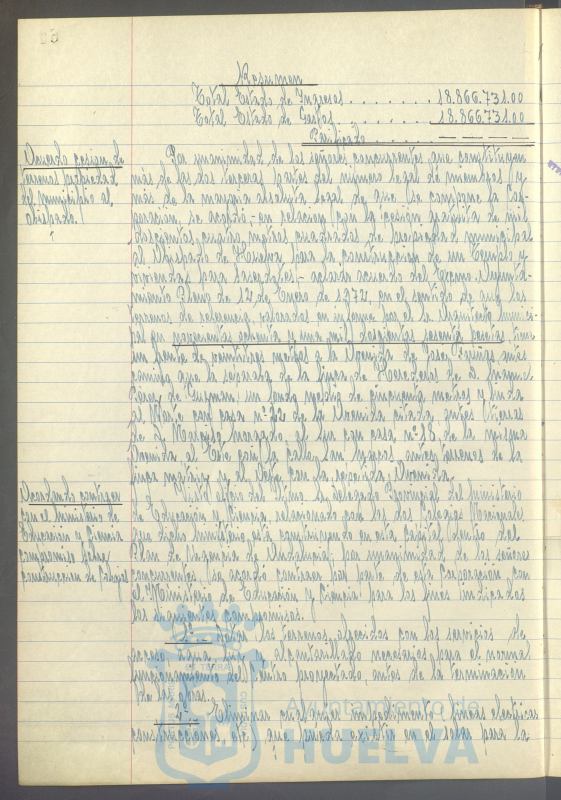 Resumen
Total Estado de Ingresos . . . . . . . 18.866.731.00
Total Estado de Gastos . . . . . . . 18.866.731.00
Nivelado . . . . . .
Acuerdo cesión de
terrenos propiedad
del municipio al
obispado.
Por unanimidad de los señores concurrentes, que constituyen
más de las dos terceras partes del número legal de miembros y
más de la mayoría absoluta legal de que se compone la Cor-
poración, se acordó, en relación con la cesión gratuita de mil
doscientos cuatro metros cuadrados de propiedad municipal
al Obispado de Huelva para la construcción de un Templo y
viviendas para Sacerdotes, aclarar acuerdo del Excmo. Ayunta-
miento Pleno de 12 de Enero de 1.972, en el sentido de que los
terrenos de referencia, valorados en informe por el Sr. Arquitecto Munici-
pal en novecientas ochenta y una mil doscientas sesenta pesetas tiene
un frente de veintitres metros a la Avenida de José Fariñas antes
camino que la separaba de la finca de Herederos de D.
Perez de Guzman: un fondo medio de cincuenta metros y linda
al Norte con casa nº 22 de la Avenida citada, antes tierras
de D. Narciso Morgado, al Sur con casa nº 18 de la misma
Avenida al Este con la calle San Marcos antes terrenos de la
finca matriz y al Oeste con la repetida Avenida.
Acordando contraer
con el Ministerio de
Educación y Ciencia
compromiso sobre
construcción de Colegios
Visto escrito del Iltmo. Sr. Delegado Provincial del Ministerio
de Educación y Ciencia, relacionado con los dos Colegios Nacionales
que dicho Ministerio está construyendo en esta capital dentro del
Plan de Urgencia de Andalucía; por unanimidad de los señores
concurrentes, se acordó contraer por parte de esta Corporación, con
el Ministerio de Educación y Ciencia para los fines indicados
los siguientes compromisos:
1º.- Dotar los terrenos afectados con los servicios de
acceso, agua, luz y alcantarillado necesarios para el normal
funcionamiento del Centro proyectado antes de la terminación
de las obras.
2º.- Eliminar cualquier impedimento (líneas eléctricas
construcciones, etc.) que pueda existir en el solar para la
Ayuntamiento de
HUELVA